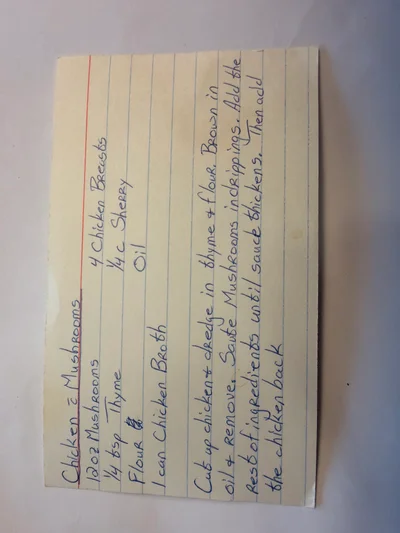 Chicken c̄ Mushrooms
12oz Mushrooms 4 Chicken Breasts
1/4 tsp Thyme 1/4 c Sherry
Flour Oil
1 can Chicken Broth
Cut up chicken & dredge in thyme & flour. Brown in
oil & remove. Saute Mushrooms in drippings. Add the
rest of ingredients until sauce thickens. Then add
the chicken back